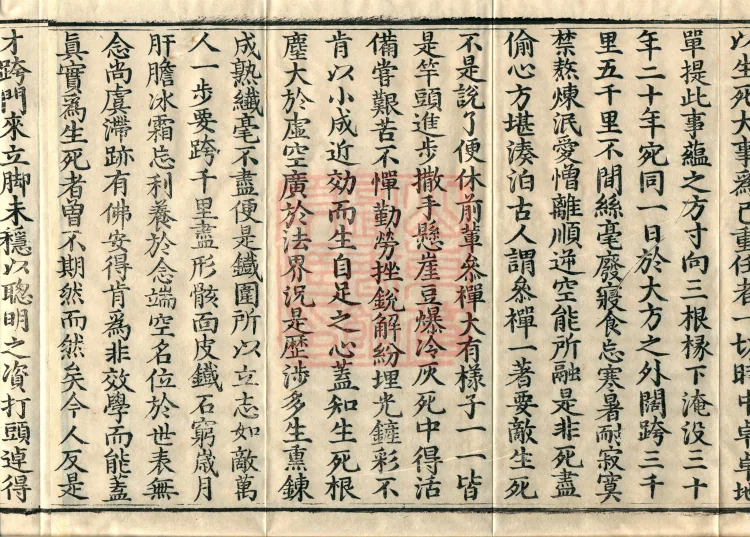 以生死大事爲己重任者一切時中卓卓地
單提此事蘊之方寸向三根椽下淹沒三十
年二十年宛同一日於大方之外闊跨三千
里五千里不間絲毫廢寢食忘寒暑耐寂寞
禁熬煉泯愛憎離順逆空能所融是非死盡
偷心方堪湊泊古人謂叅禪一著要敵生死
不是說了便休前輩叅禪大有樣子一一皆
是竿頭進步撒手懸崖豆爆冷灰死中得活
備嘗艱苦不憚勤勞挫銳解紛埋光鏟彩不
肯以小成近効而生自足之心蓋知生死根
塵大於虛空廣於法界況是歷涉多生熏鍊
成熟纖毫不盡便是鐵圍所以立志如敵萬
人一步要跨千里盡形骸面皮鐵石窮歲月
肝膽冰霜忘利養於念端空名位於世表無
念尚虞滯跡有佛安得肯爲非效學而能蓋
眞實爲生死者曽不期然而然矣今人反是
才跨門來立脚未穩以聰明之資打頭遉得